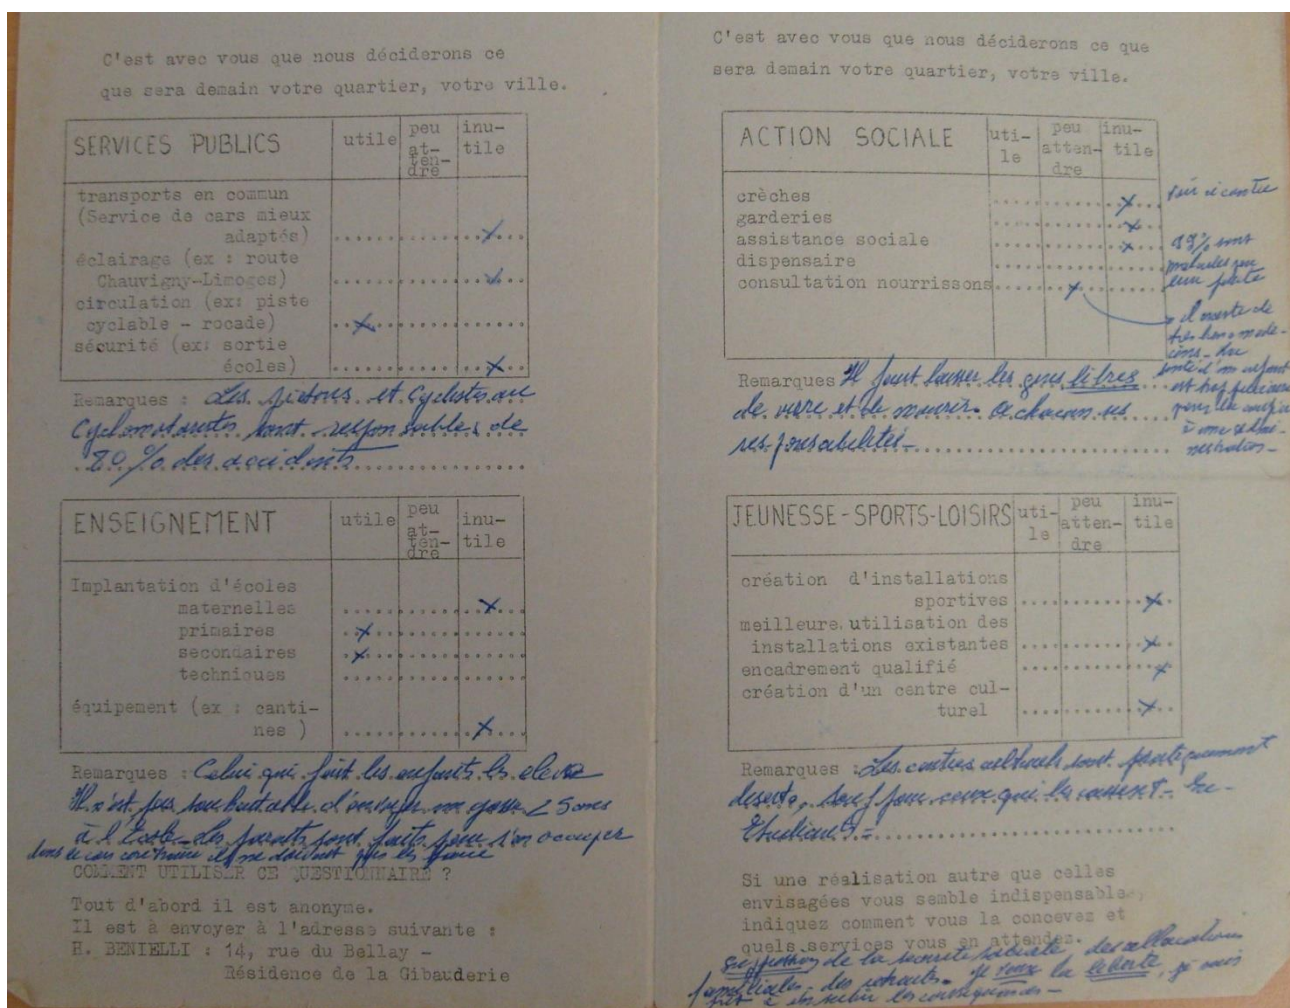 C'est avec vous que nous déciderons ce
que sera demain votre quartier, votre ville.
SERVICES PUBLICS utile peu at-ten-dre inu-tile
transports en commun
(Service de cars mieux
adaptés) x
éclairage (ex : route
Chauvigny-Limoges) x
circulation (ex: piste
cyclable - rocade) x
sécurité (ex: sortie
écoles) x
Remarques : Les piétons et cyclistes ou
Cyclomotoristes sont responsables de
80 % des accidents
ENSEIGNEMENT utile peu at-ten-dre inu-tile
Implantation d'écoles
maternelles x
primaires x
secondaires x
techniques
équipement (ex : canti-
nes ) x
Remarques : Celui qui fait les enfants les élève
Il n'est pas souhaitable d'envoyer un gosse < 5 ans
à l'école - Les parents sont faits pour s'en occuper
dans le cas contraire ils ne doivent pas les faire
COMMENT UTILISER CE QUESTIONNAIRE ?
Tout d'abord il est anonyme.
Il est à envoyer à l'adresse suivante :
H. BENIELLI : 14, rue du Bellay -
Résidence de la Gibauderie
C'est avec vous que nous déciderons ce que
sera demain votre quartier, votre ville.
ACTION SOCIALE uti-le peu atten-dre inu-tile
crèches x voir ci contre
garderies x
assistance sociale x 99% sont
dispensaire malades par
consultation nourrissons x leur faute
il existe de
très bons méde-
cins - La
santé d'un enfant
est trop précieuse
pour la confier
à une admi-
nistration -
Remarques Il faut laisser les gens libres
de vivre et de mourir. A chacun ses
responsabilités -
JEUNESSE-SPORTS-LOISIRS uti-le peu atten-dre inu-tile
création d'installations
sportives x
meilleure utilisation des
installations existantes x
encadrement qualifié x
création d'un centre cul-
turel x
Remarques : Les centres culturels sont pratiquement
déserts, sauf pour ceux qui les
Etudiants -
Si une réalisation autre que celles
envisagées vous semble indispensable,
indiquez comment vous la concevez et
quels services vous en attendez.
Suppression de la sécurité sociale des allocations
familiales - des retraites. Je veux la liberté, je suis
prêt à en subir les conséquences -